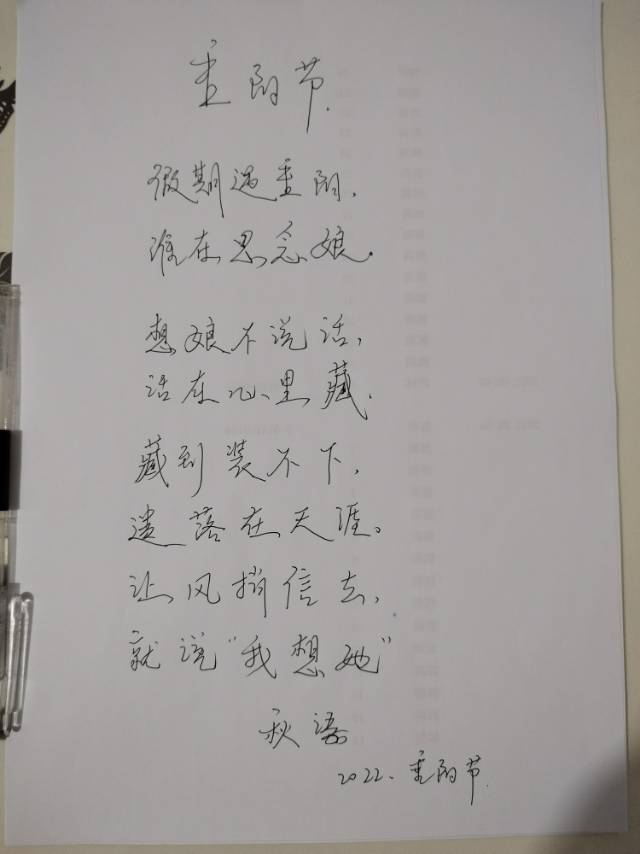 重阳节.
假期遇重阳,
谁在思念娘.
想娘不说话,
话在心里藏.
藏到装不下,
遗落在天涯。
让风捎信去,
就说“我想她”
秋语
2022.重阳节.